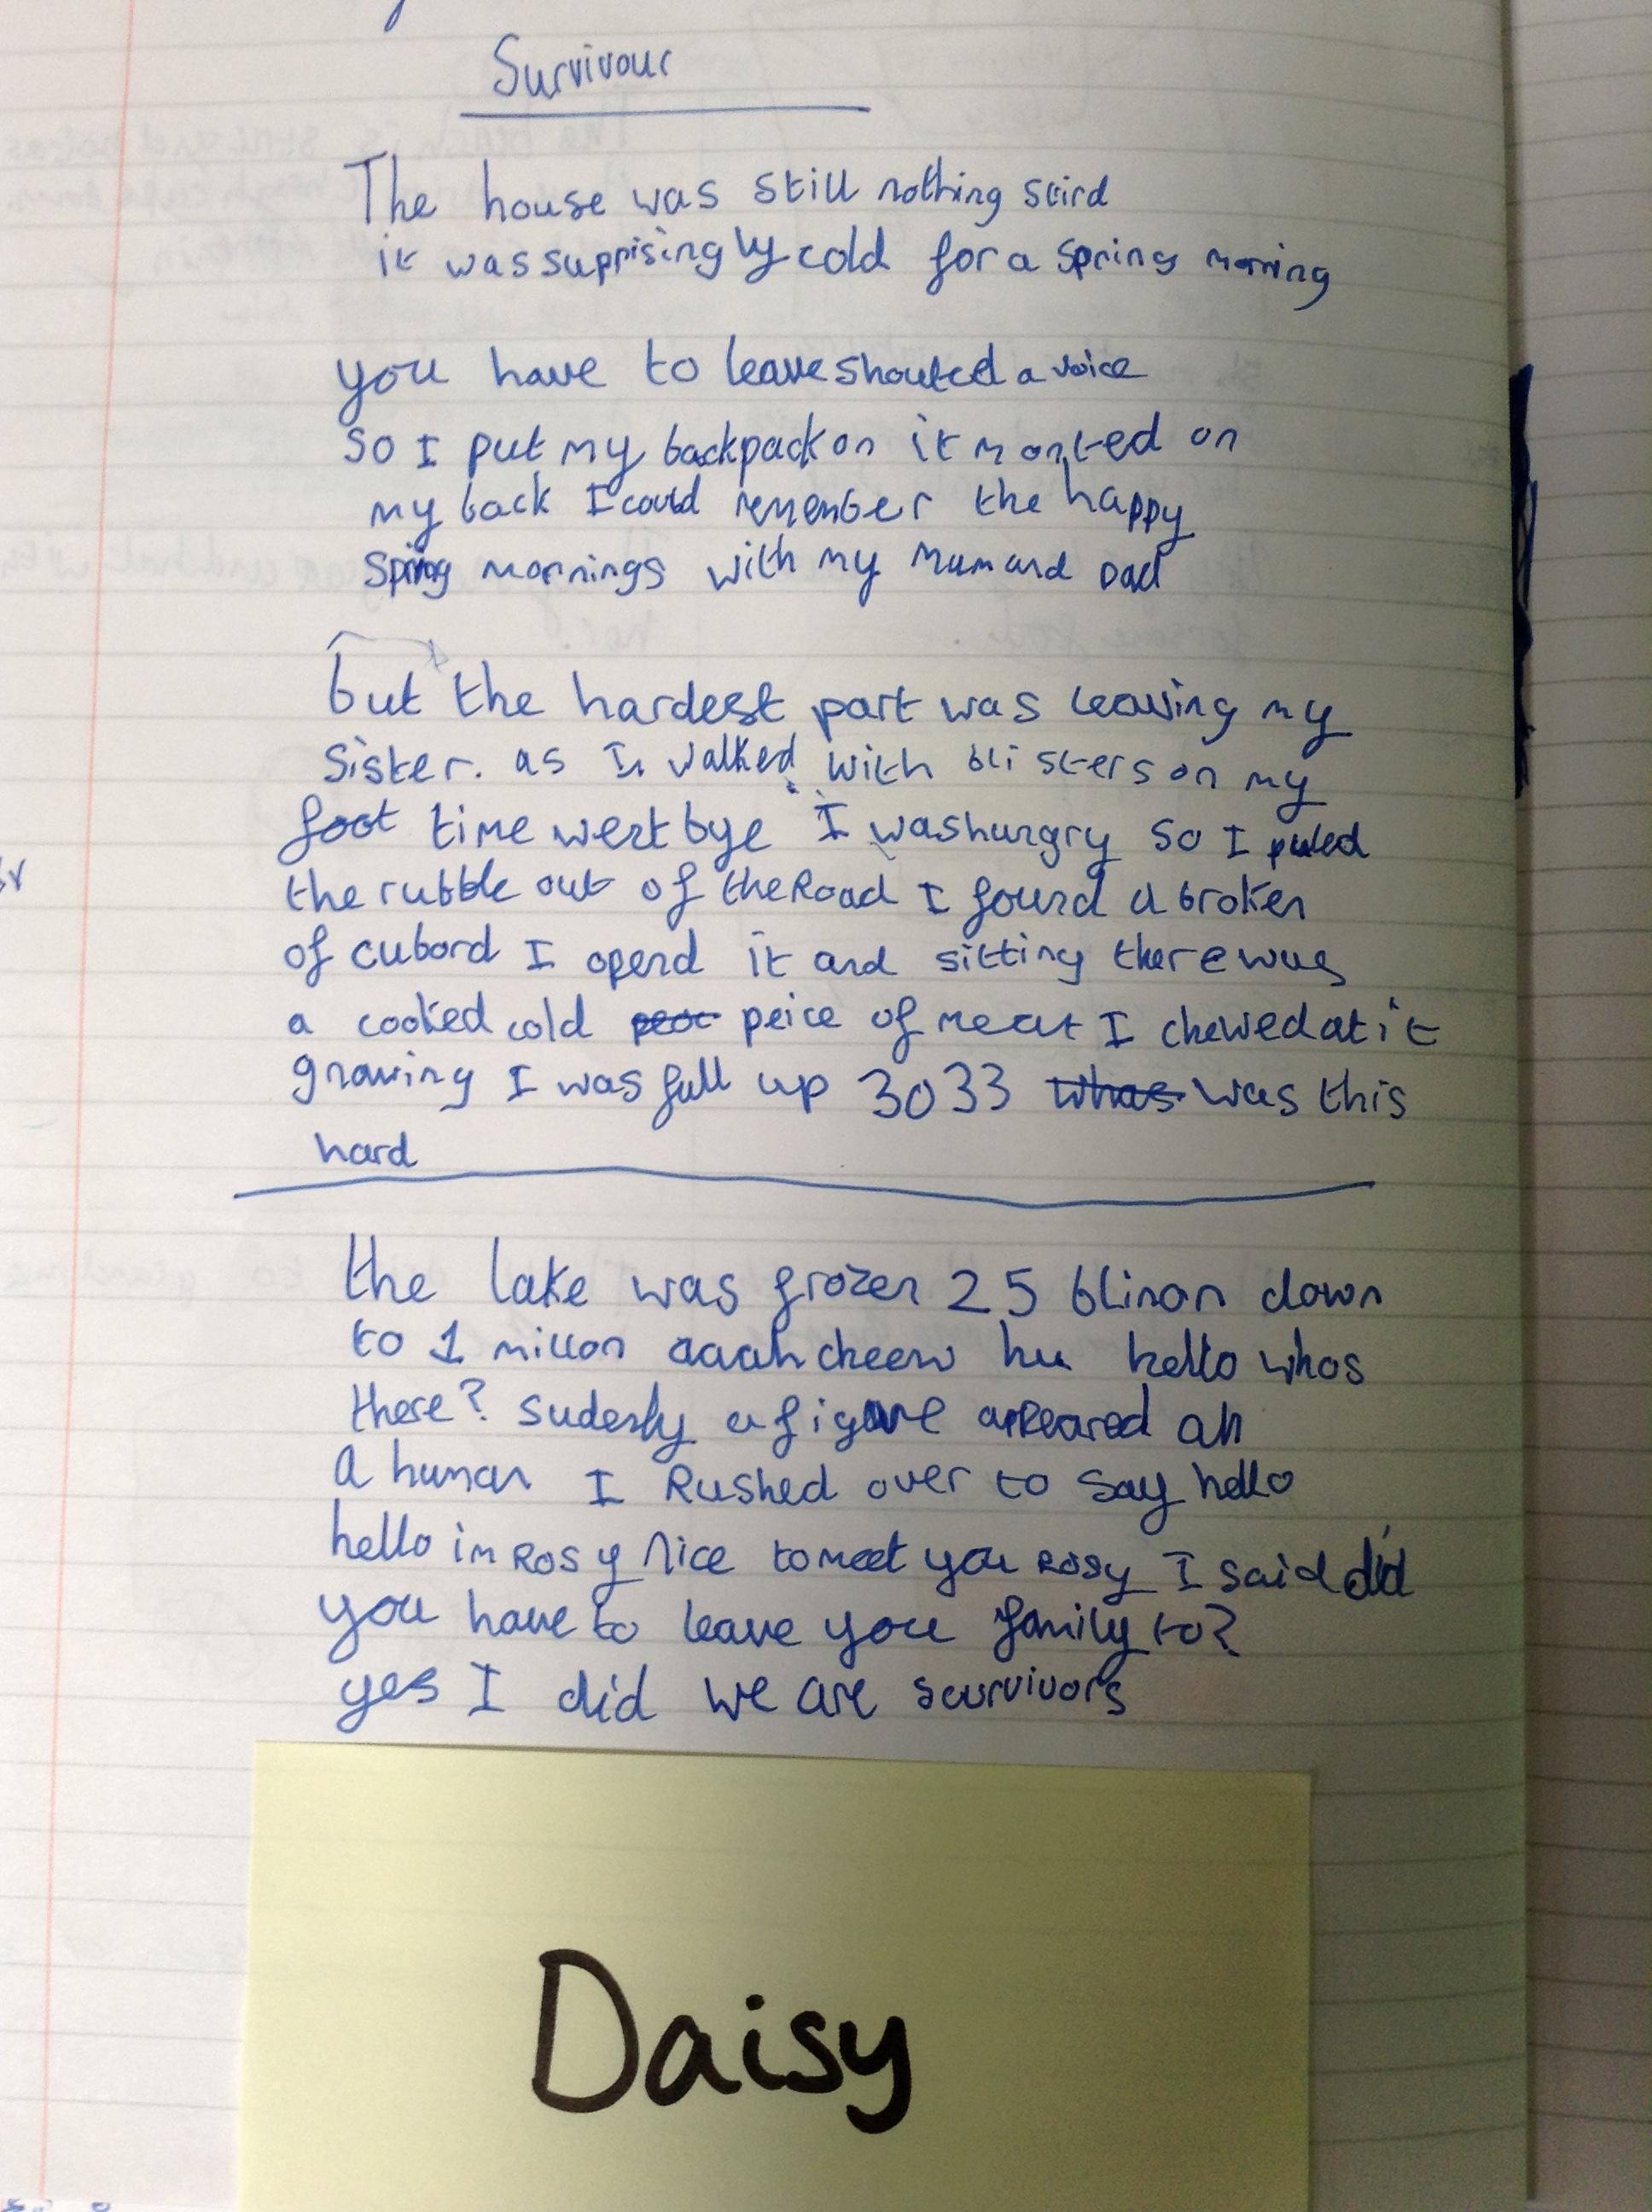 Survivour
The house was still nothing stird
it was supprisingly cold for a spring morning
you have to leave shouted a voice
so I put my backpack on it monted on
my back I could remember the happy
Spring mornings with my mum and Dad
but the hardest part was leaving my
sister. as I walked with blisters on my
foot time went bye I was hungry so I puled
the rubble out of the Road I found a broken
of cubord I opend it and sitting there was
a cooked cold peice of meat I chewed at it
gnawing I was full up 3033 was this
hard
the lake was frozen 25 blinon down
to 1 millon aaah cheew hu hello whos
there? sudenly a figure appeared ah
a human I Rushed over to say hello
hello im Rosy nice to meet you Rosy I said did
you have to leave you family to?
yes I did we are survivors
Daisy